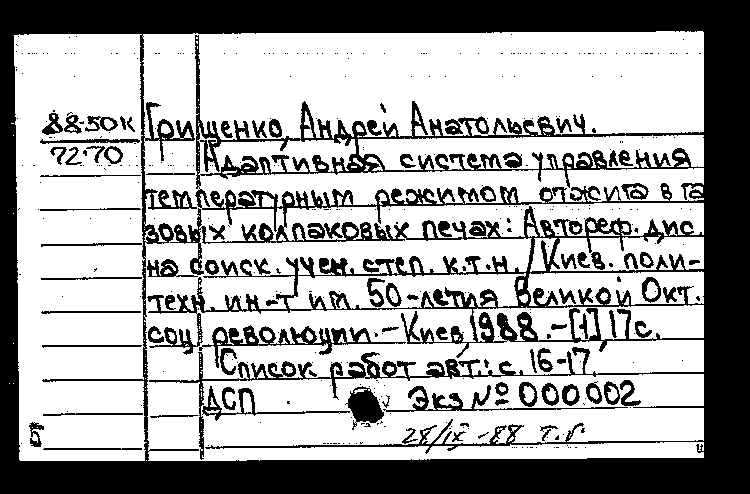 88-50К Грищенко, Андрей Анатольевич.
72-70 Адаптивная система управления
температурным режимом отжига в га
зовых колпаковых печах: Автореф. дис.
на соиск. учен. степ. к.т.н. / Киев. поли-
техн. ин-т им. 50-летия Великой Окт.
соц революции. - Киев, 1988. - [1], 17 с.
Список работ авт.: с. 16-17.
ДСП Экз № 000002
Б 28/IX-88